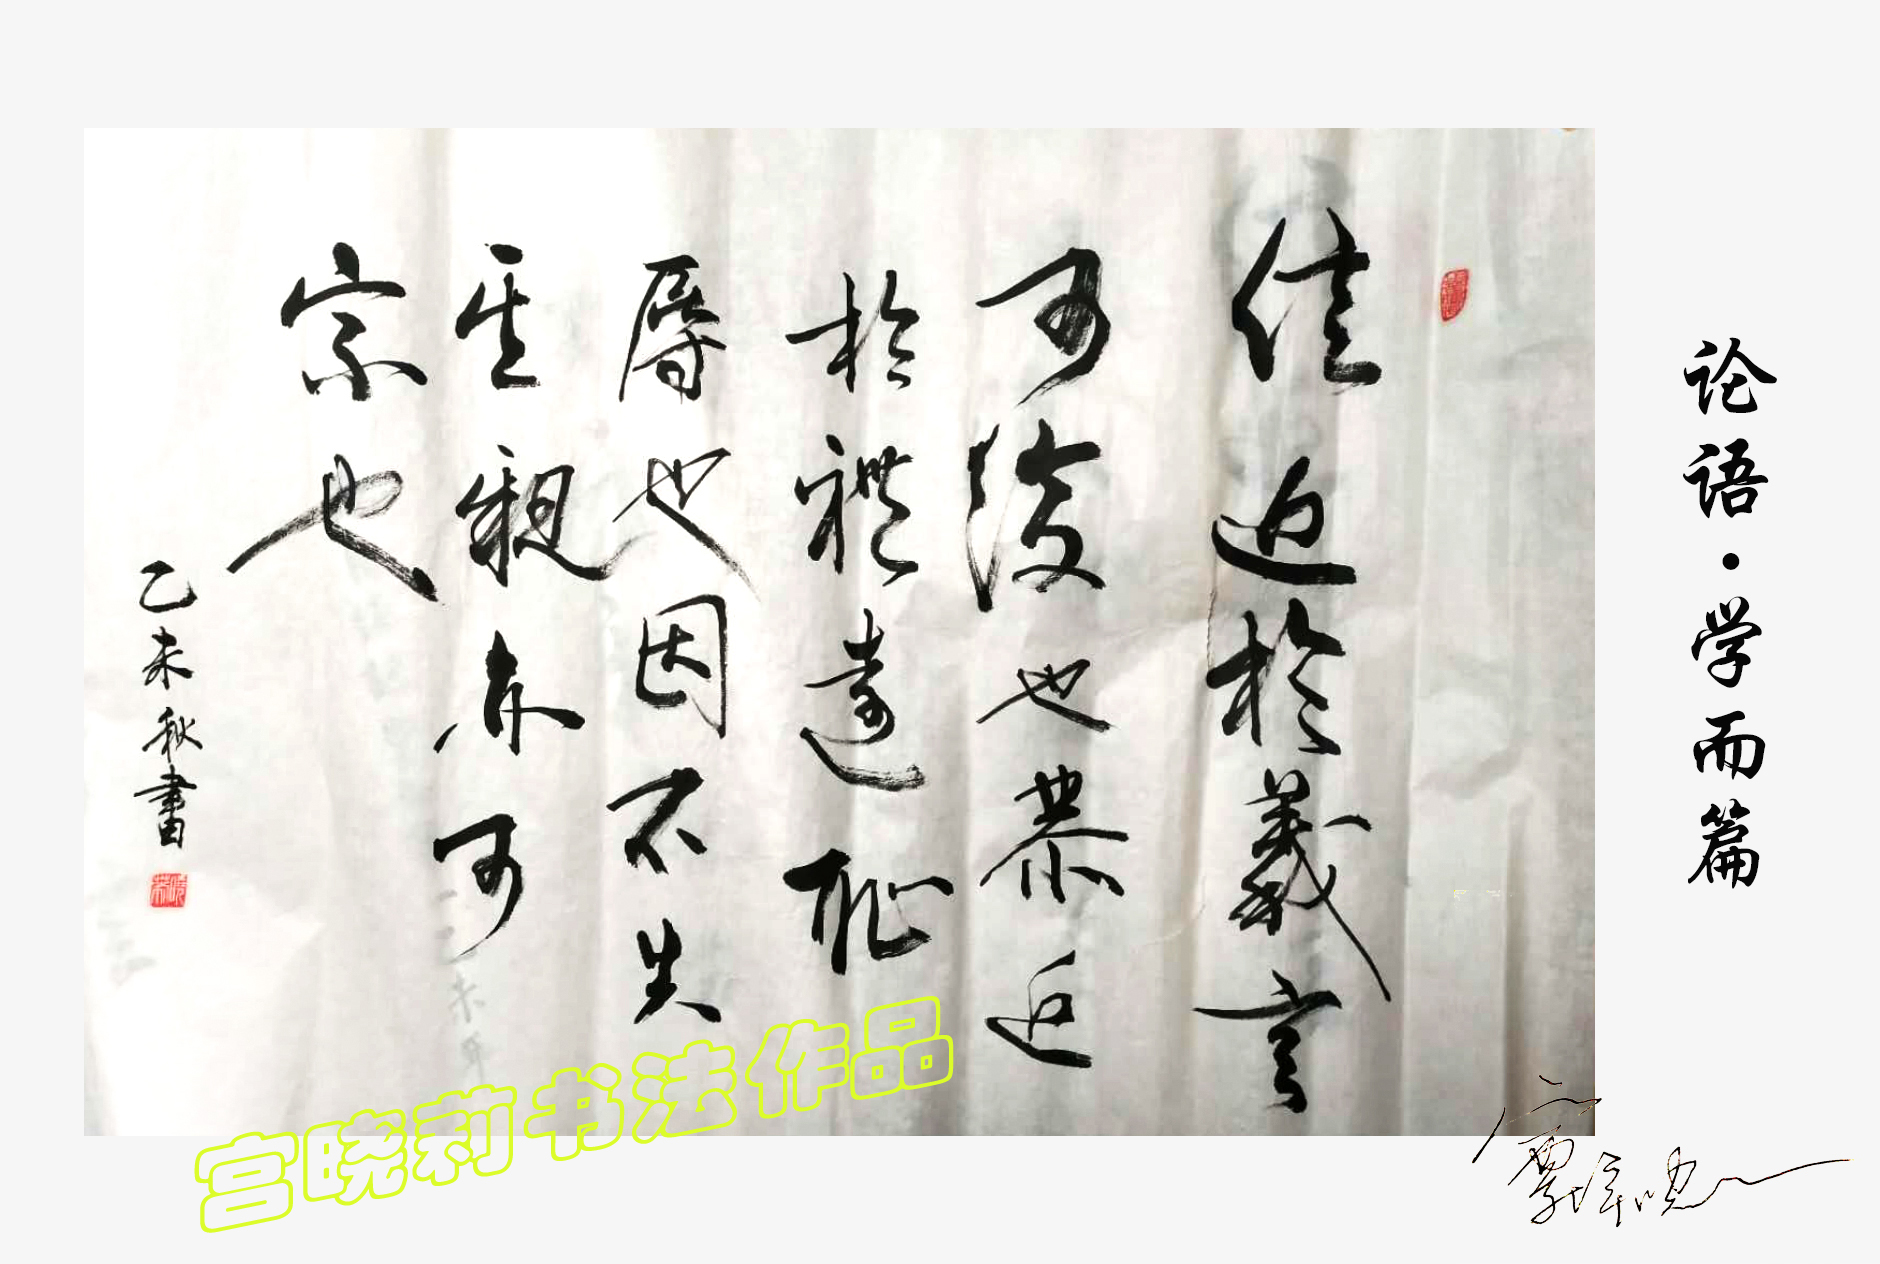 论语·学而篇
信近於義言
可復也恭近
於禮遠恥
辱也因不失
其親亦可
宗也
乙未秋書
宫晓莉书法作品